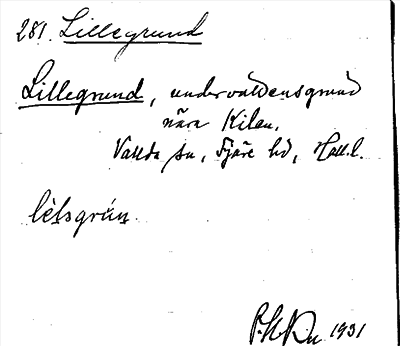 281. Lillegrund
Lillegrund, undervattensgrund
nära Kilen.
Vallda sn, Fjäre hd, Hall. l.
1931